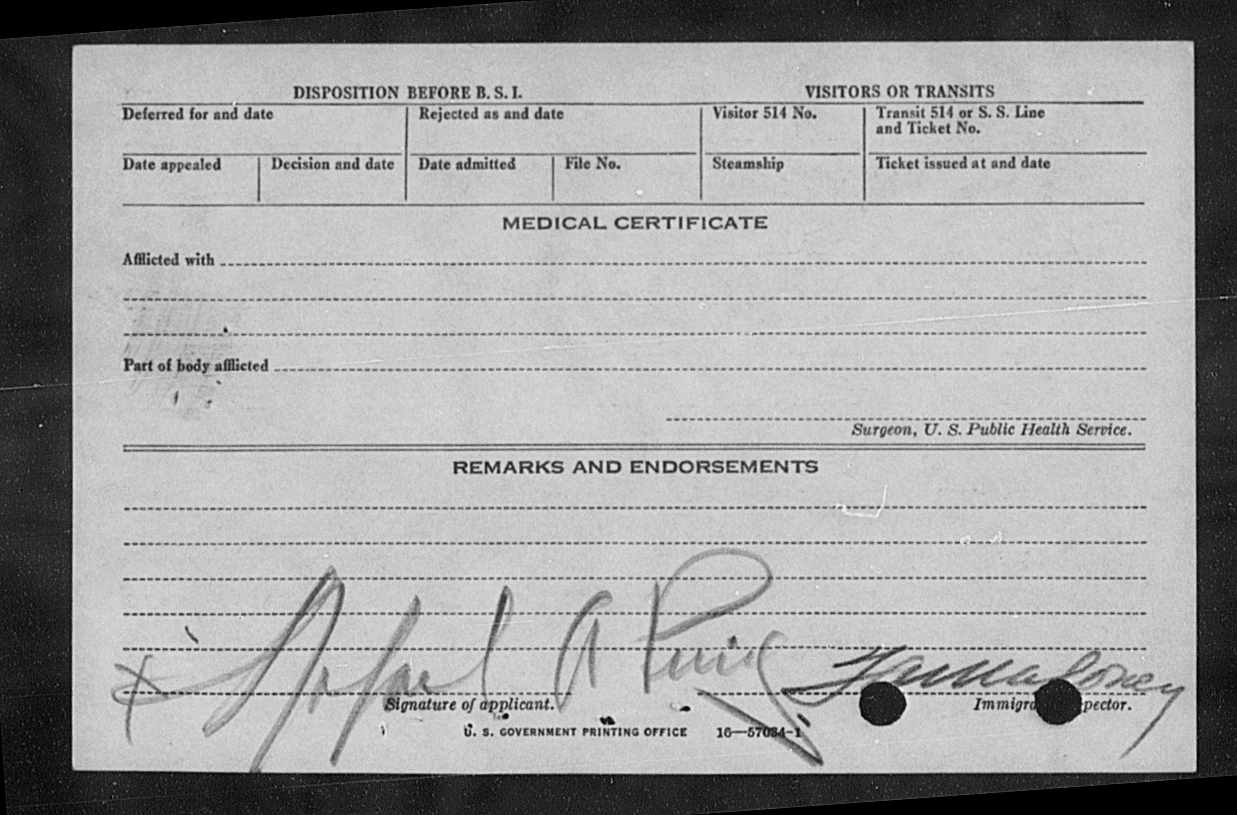 DISPOSITION BEFORE B. S. I.
VISITORS OR TRANSITS
Deferred for and date
Rejected as and date
Visitor 514 No.
Transit 514 or S. S. Line
and Ticket No.
Date appealed
Decision and date
Date admitted
File No.
Steamship
Ticket issued at and date
MEDICAL CERTIFICATE
Afflicted with
Part of body afflicted
Surgeon, U. S. Public Health Service.
REMARKS AND ENDORSEMENTS
x Rafael A Puig
Maloney
Signature of applicant.
U. S. GOVERNMENT PRINTING OFFICE 16—57034-1